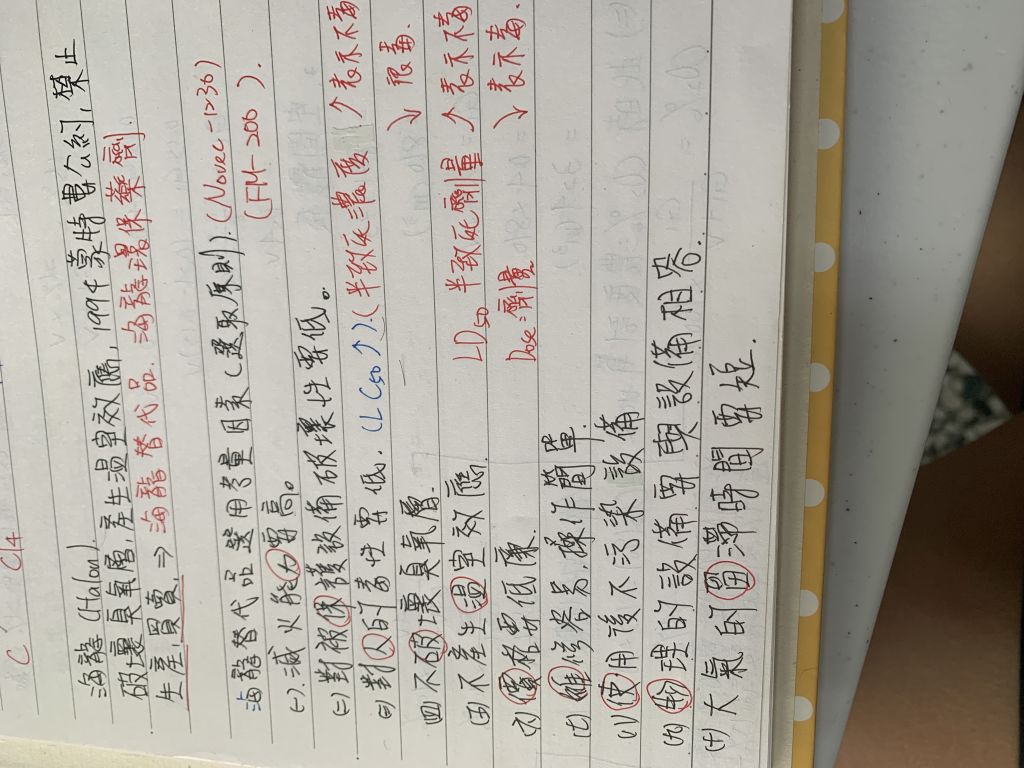 C C/4
海龍 (Halon).
破壞臭氧層,產生温室效應, 1994 蒙特婁公約, 禁止
生產,買賣, ⇒ 海龍替代品. 海龍環保藥劑.
海龍替代品選用考量因素(選取原則). (Novec-1230)
(FM-200).
(一). 滅火能力要高。
(二) 對被保護設備破壞性要低。
(三) 對人的毒性要低. (LC50↑). (半致死濃度 ↑表示不毒
↓ 很毒.
(四) 不破壞臭氧層.
(五) 不產生温室效應. LD50 半致死劑量 ↑ 表示不毒
Dose:劑量 ↓ 表示毒.
(六) 價格要低廉.
(七) 維修容易,操作簡單.
(八) 使用後不污染設備
(九) 物理的設備要與設備相容.
(十) 大氣的留滯時間要短.